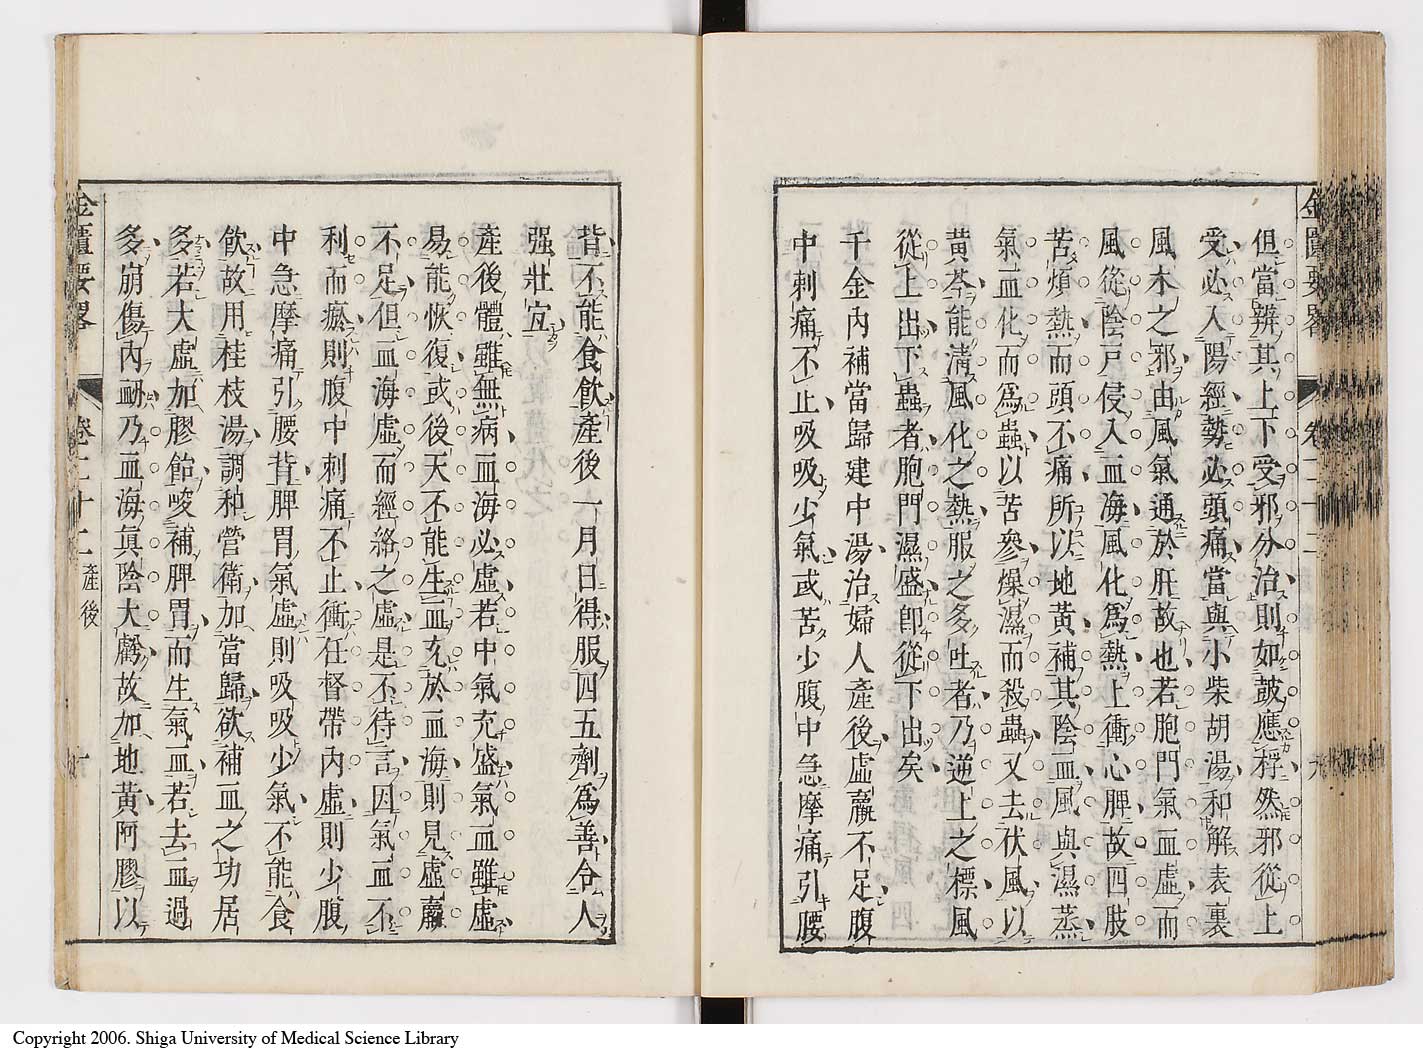 金匱要畧
卷二十二
九
但當辨其上下受邪分治則如皷應桴然邪從上
受必入陽經勢必頭痛當與小柴胡湯和解表裏
風木之邪由風氣通於肝故也若胞門氣血虛而
風從陰戸侵入血海風化為熱上衝心脾故四肢
苦煩熱而頭不痛所以地黃補其陰血風與濕蒸
氣血化而為蟲以苦參燥濕而殺蟲又去伏風以
黃芩能清風化之熱服之多吐者乃逆上之標風
從上出下蟲者胞門濕盛卽從下出矣
千金內補當歸建中湯治婦人產後虛羸不足腹
中刺痛不止吸吸少氣或苦少腹中急摩痛引腰
背不能食飲產後一月日得服四五劑為善令人
强壯宜
產後體雖無病血海必虛若中氣充盛氣血雖虛
易能恢復或後天不能生血充於血海則見虛羸
不足但血海虛而經絡之虛是不待言因氣血不
利而瘀則腹中刺痛不止衝任督帶內虛則少腹
中急摩痛引腰背脾胃氣虛則吸吸少氣不能食
飲故用桂枝湯調和營衛加當歸欲補血之功居
多若大虛加膠飴峻補脾胃而生氣血若去血過
多崩傷內衂乃血海眞陰大虧故加地黃阿膠以
金匱要畧
卷二十二
產後
十
Copyright 2006. Shiga University of Medical Science Library